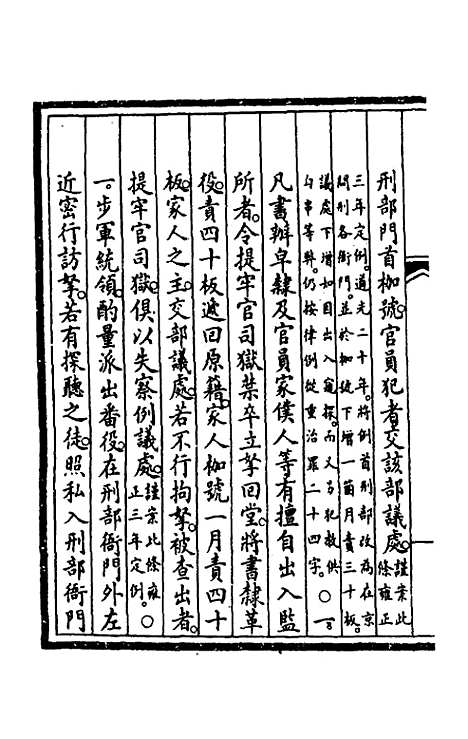 刑部門首枷號。官員犯者交該部議處。謹案此條雍正
三年定例。道光二十年。將例首刑部改為在京
問刑各衙門。並於枷號下增一箇月責三十板。
議處下增如因出入窺探。而又另犯教供
舞弊等事。仍按律例從重治罪二十四字。○一
凡書辦皁隸及官員家僕人等有擅自出入監
所者。令提牢官司獄禁卒立拏回堂。將書隸革
役。責四十板遞回原籍。家人枷號一月責四十
板。家人之主。交部議處。若不行拘拏。被查出者。
提牢官司獄。俱以失察例議處。謹案此條雍正三年定例。○
一。步軍統領。酌量派出番役。在刑部衙門外左
近密行訪拏。若有探聽之徒。照私入刑部衙門